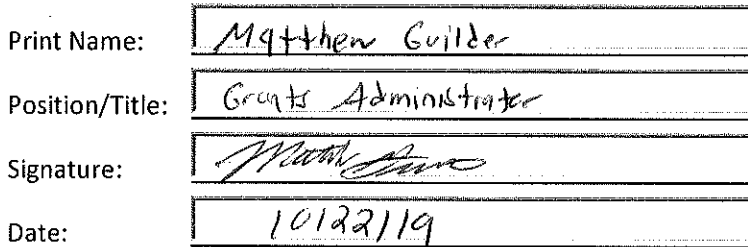 Print Name: Matthew Guilder
Position/Title: Grants Administrator
Signature:
Date: 10/22/19